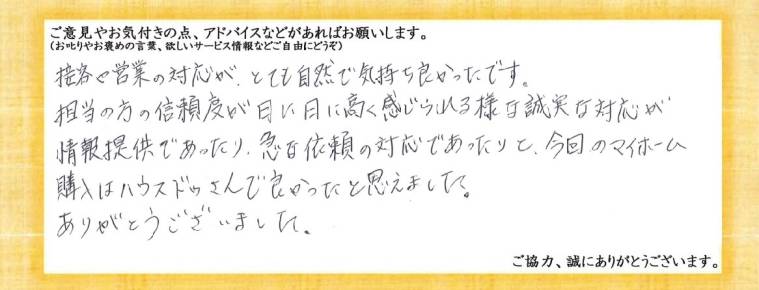 ご意見やお気付きの点、アドバイスなどがあればお願いします。
(お叱りやお褒めの言葉、欲しいサービス情報などご自由にどうぞ)
接客や営業の対応が、とても自然で気持ち良かったです。
担当の方の信頼度が日に日に高く感じられる様な誠実な対応が
情報提供であったり、急な依頼の対応であったりと、今回のマイホーム
購入はハウスドゥさんで良かったと思えました。
ありがとうございました。
ご協力、誠にありがとうございます。